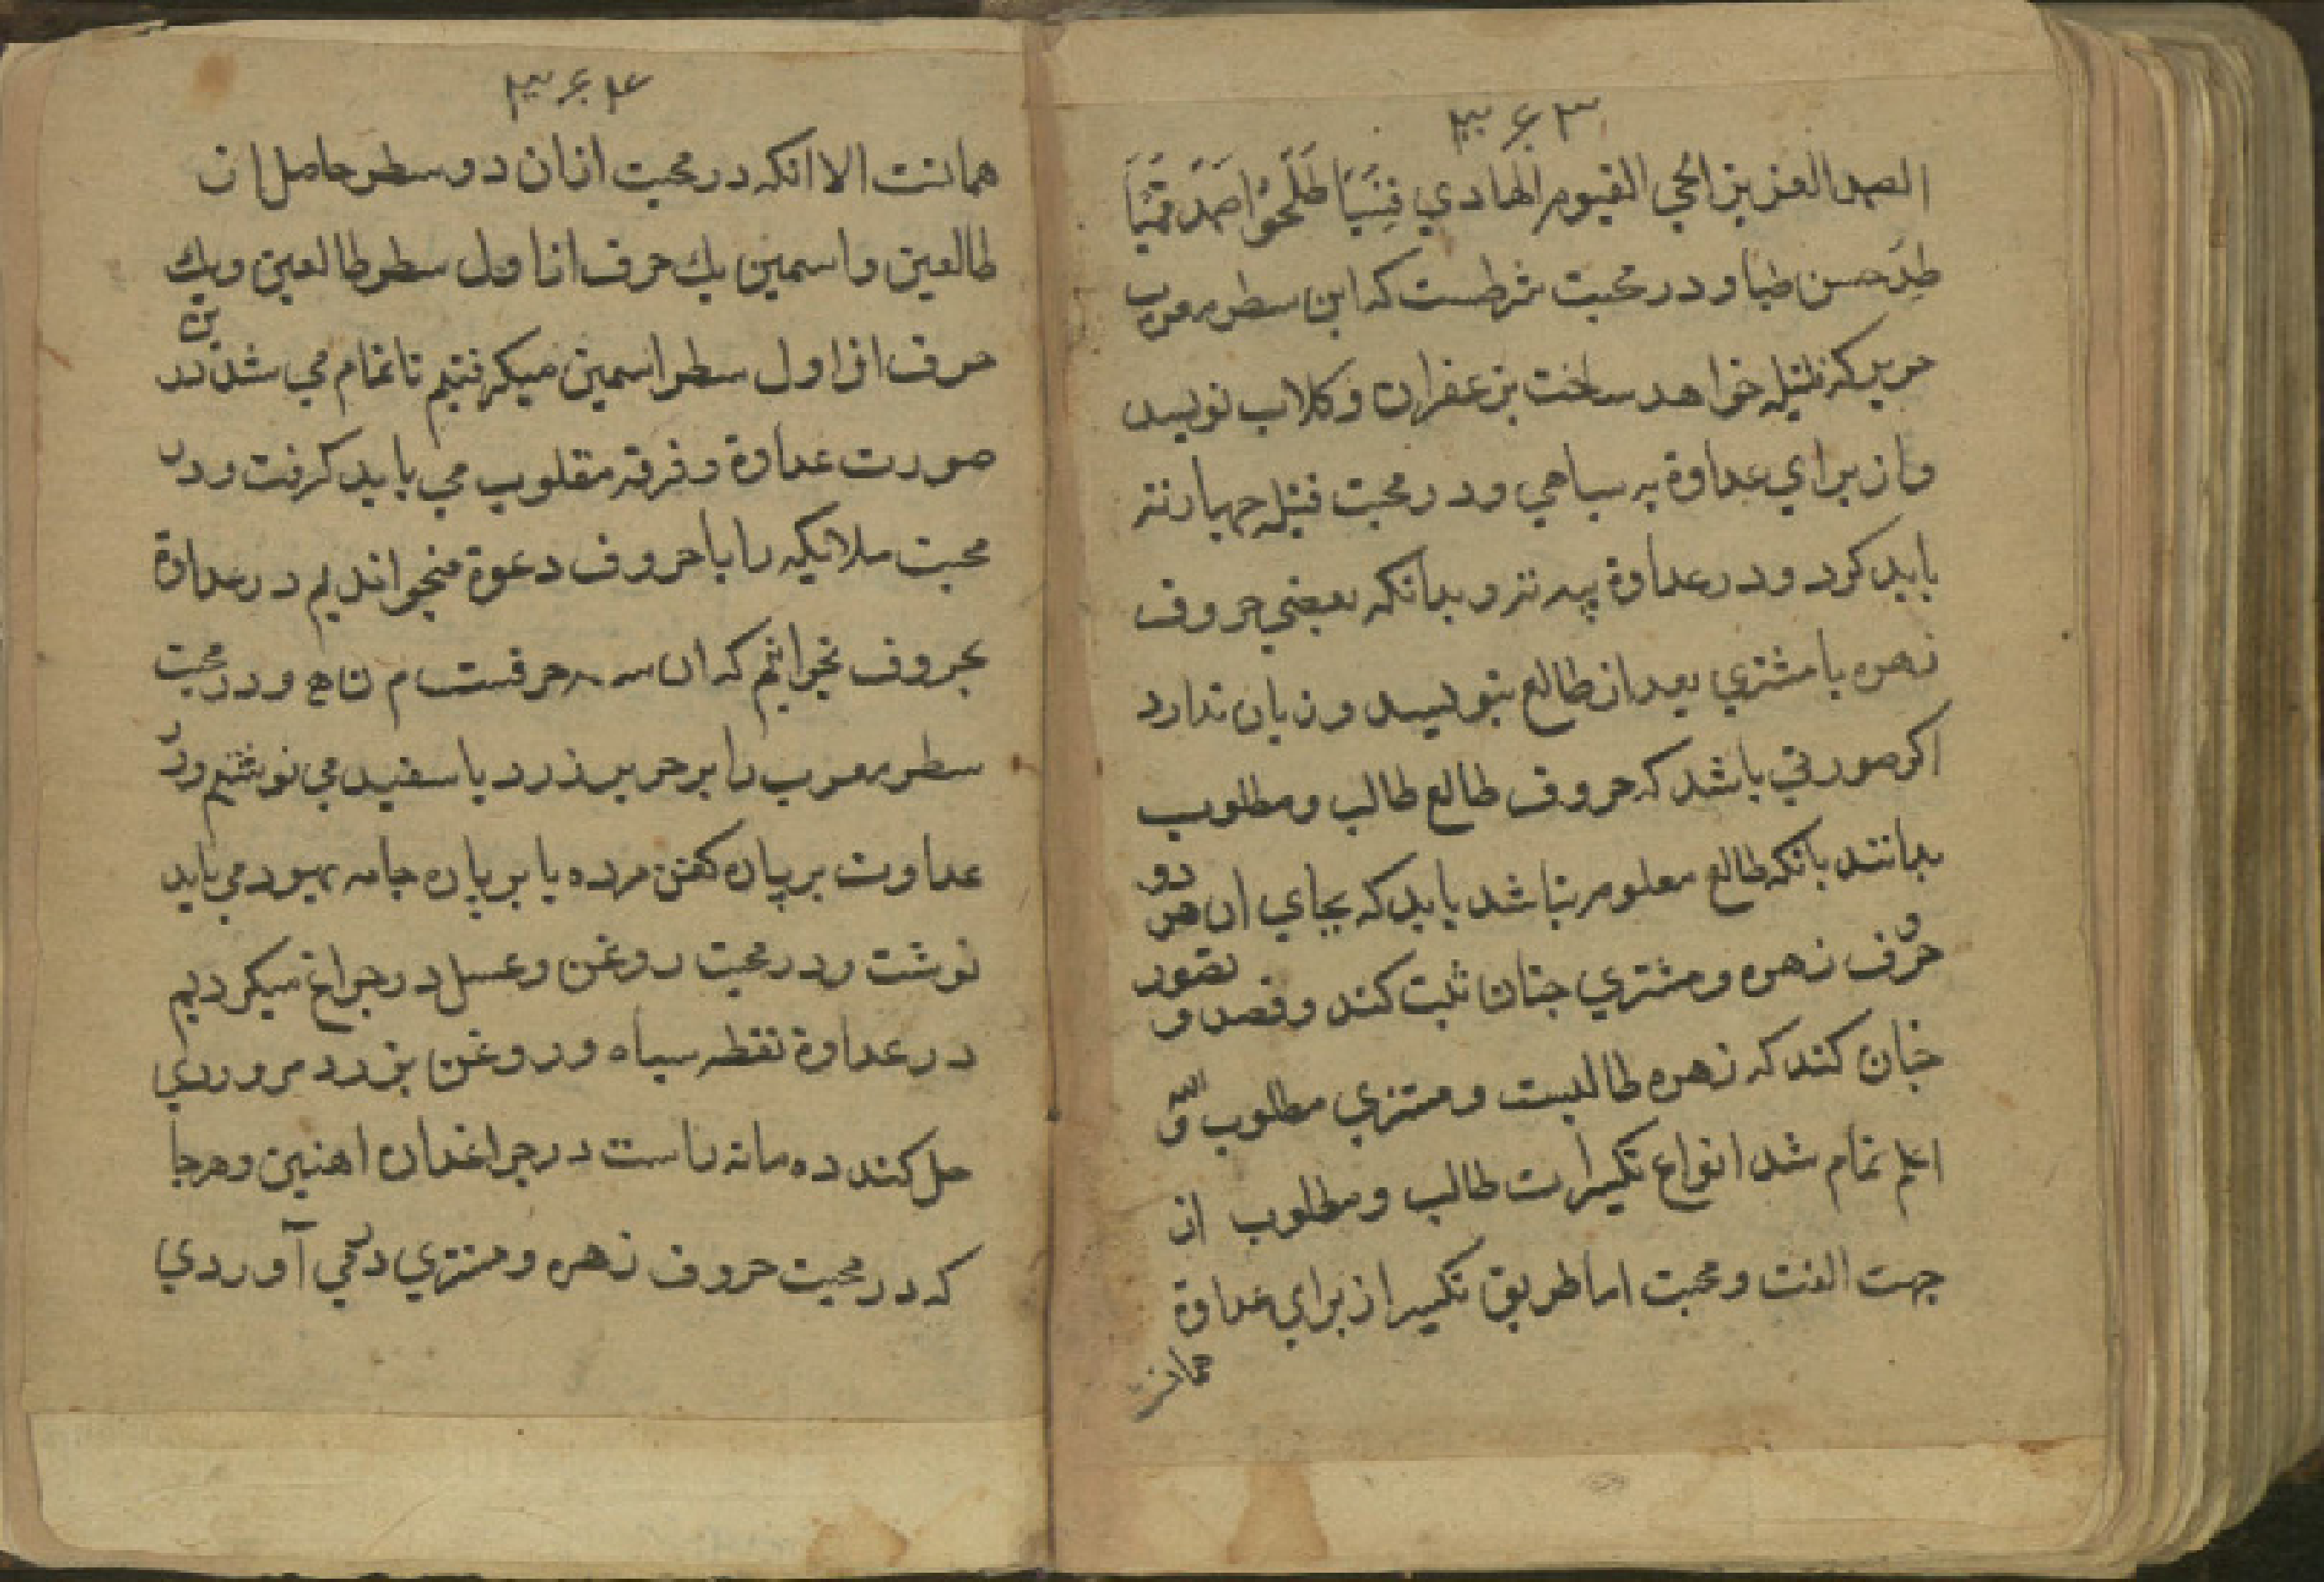 ۳۶۳
الصمد العزیز الحي القیوم الهادي
طِلَدَحسن طیا و در محبت شرطست که این سطر معرب
حریر که فتیله خواهد ساخت بزعفران و کلاب نویسد
و از برای عداوة به سیاهي و در محبت فتیله چهارتنه
باید کرد و در عداوة په تنه و بدانکه بعضي حروف
زهره یا مشتري بعد از طالع بنویسد و زیان ندارد
اکر صورتي باشد که حروف طالع طالب و مطلوب
بدانند بانکه طالع معلوم نباشد باید که بجاي ان هر دو
حروف زهره و مشتري چنان ثبت کند و قصد و تصور
چنان کند که زهره طالبست و مشتري مطلوب والله
اعلم تمام شد انواع تکسیرات طالب و مطلوب از
جهت الفت و محبت اما طریق تکسیر از براي عداوة
همانست
۳۶۴
همانست الا انکه در محبت ازان دو سطر حاصل از
طالعین و اسمین یك حرف از اول سطر طالعین و یك
حرف از اول سطر اسمین میکرفتیم تا تمام مي شد در
صورت عداوة و فرقه مقلوب مي باید کرفت و در
محبت ملایکه را با حروف دعوة میخواندیم در عداوة
بحروف نخوانیم که ان سه حرفست م ن اه و در محبت
سطر معرب را بر حریر زرد یا سفید مي نوشتیم و در
عداوت بر پاره کفن مرده یا بر پاره جامه یهود مي باید
نوشت و در محبت روغن و عسل در چراغ میکردیم
در عداوة نفطه سیاه و روغن بزرد مروردي
حل کند ده مانه راست در چراغدان اهنین و هرجا
که در محبت حروف زهره و مشتري در مي آوردي